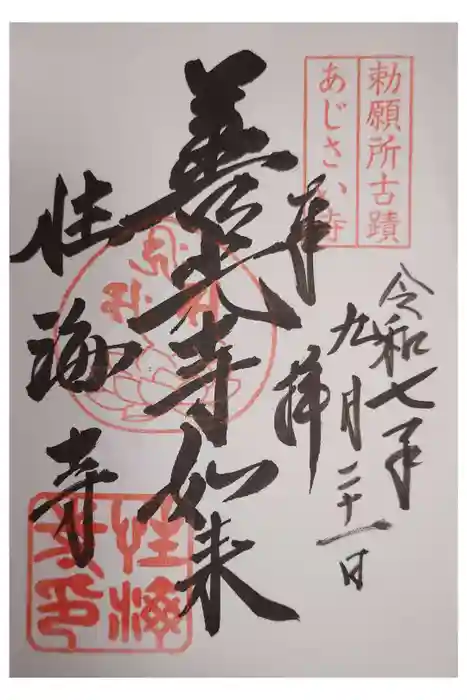 勅願所古蹟
あじさい寺
奉拝
令和七年
九月二十一日
善光寺如来
性海寺
性海
寺印